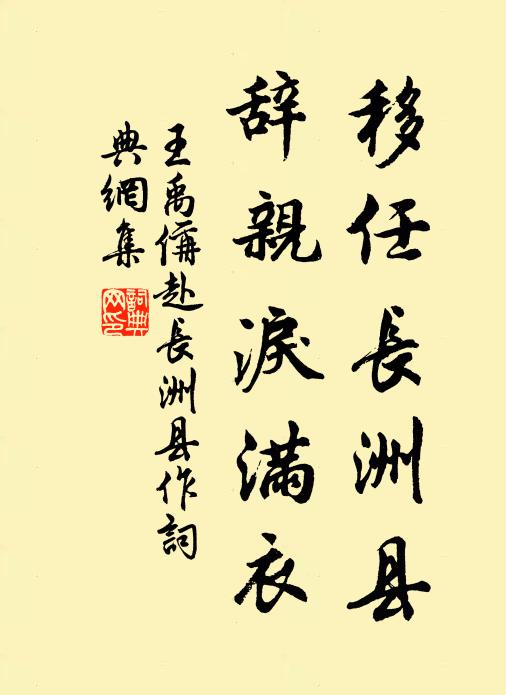 移任長洲县
辞親淚满衣
王禹偁赴長洲县作詞
典網集
詞典网印